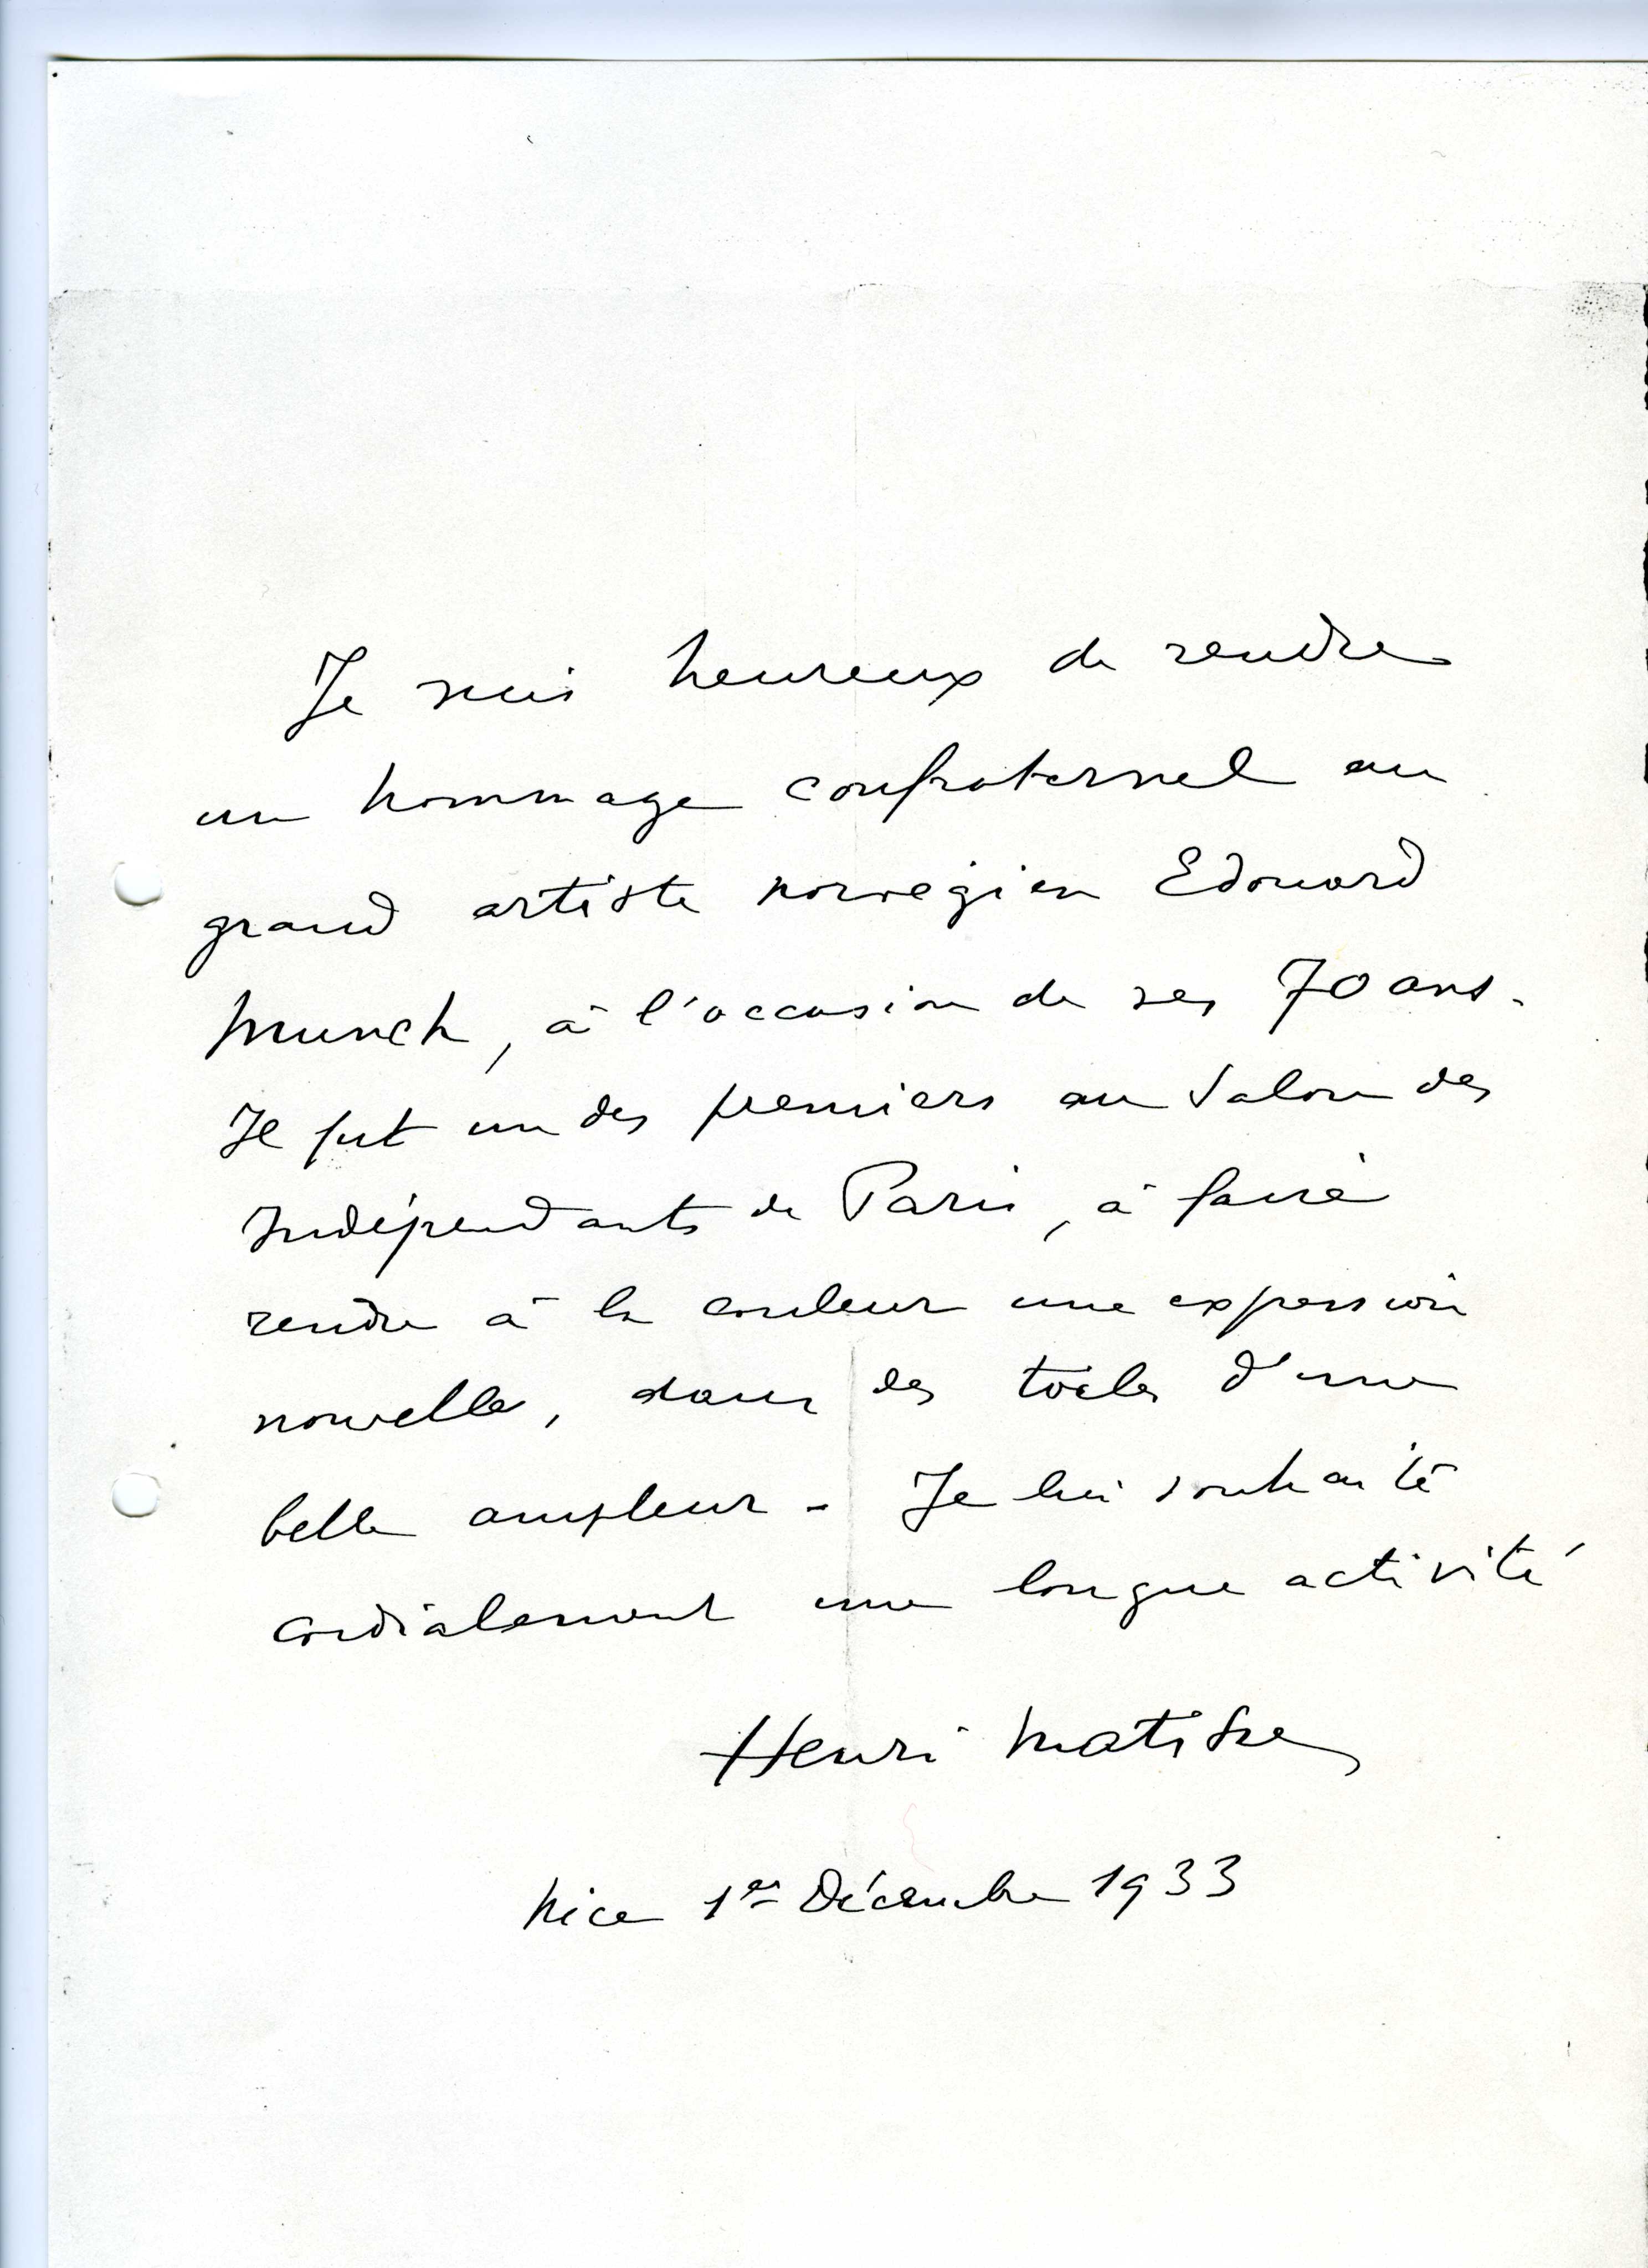 Je suis heureux de rendre
un hommage confraternel au
grand artiste norvégien Edouard
Munch, à l'occasion de ses 70 ans.
Il fut un des premiers au Salon des
Indépendants de Paris, à faire
rendre à la couleur une expression
nouvelle, dans des toiles d'une
belle ampleur - Je lui souhaite
cordialement une longue activité
Henri Matisse
Nice 1er Décembre 1933